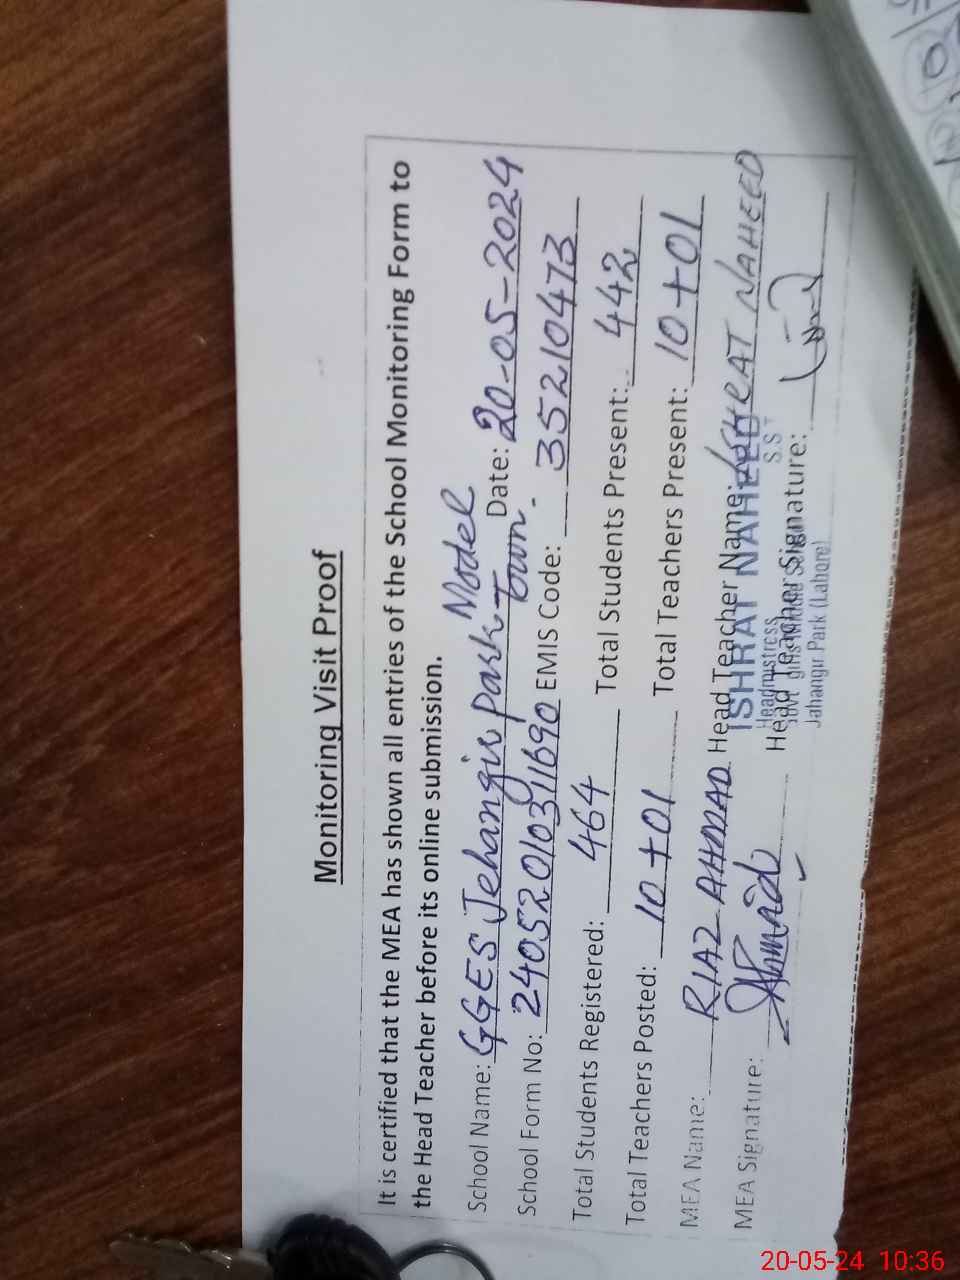 Monitoring Visit Proof
It is certified that the MEA has shown all entries of the School Monitoring Form to
the Head Teacher before its online submission.
School Name: GGES Jehangir Park Model Town. Date: 20-05-2024
School Form No: 24052010311690 EMIS Code: 35210473
Total Students Registered: 464 Total Students Present: 442
Total Teachers Posted: 10+01 Total Teachers Present: 10+01
MEA Name: RIAZ AHMAD Head Teacher Name: ISHRAT NAHEED
ISHRAT NAHEED
S.S.T
Headmistress
MEA Signature: Ahmad Head Teacher Signature:
Govt girls
Jahangir Park (Lahore)
20-05-24 10:36